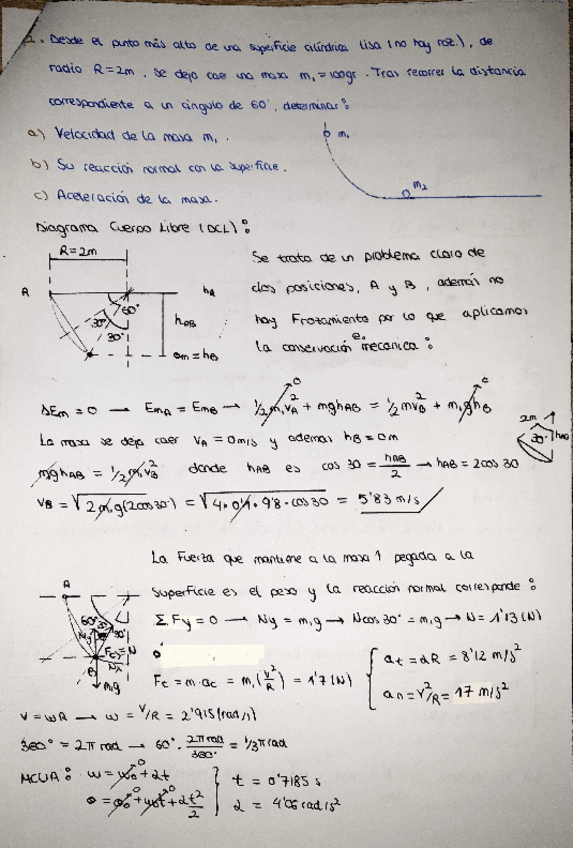 2. Desde el punto más alto de una superficie cilíndrica lisa (no hay roz.), de
radio R=2m, se deja caer una masa m₁=100gr. Tras recorrer la distancia
correspondiente a un ángulo de 60°, determinar:
a) Velocidad de la masa m₁.
b) Su reacción normal con la superficie.
c) Aceleración de la masa.
m₁
m₂
Diagrama Cuerpo Libre (DCL):
R=2m
A
hA
60°
30°
30°
hAB
0m=hB
Se trata de un problema claro de
dos posiciones, A y B, además no
hay Frozamiento por lo que aplicamos
la conservación e. mecánica:
ΔEm = 0 → EmA = EmB → ½m₁vA² + mghAB = ½mvB² + m₁ghB
0
0
La masa se deja caer vA = 0m/s y además hB = 0m
2m
30°
hAB
mghAB = ½m₁vB² donde hAB es cos 30 = hAB/2 → hAB = 2cos30
vB = √2m₁g(2cos30°) = √4·0'1·9'8·cos30 = 5'83 m/s
La Fuerza que mantiene a la masa 1 pegada a la
superficie es el peso y la reacción normal corresponde:
A
60°
30°
Ny
Fc=N
Nx
B
m₁g
ΣFy = 0 → Ny = m₁g → Ncos30° = m₁g → N = 1'13 (N)
Fc = m·ac = m₁(v²/R) = 1'7 (N)
at = αR = 8'12 m/s²
an = v²/R = 17 m/s²
v = wR → w = v/R = 2'915 (rad/s)
360° = 2π rad → 60° · 2π rad/360° = 1/3π rad
MCUA: w = w₀ + αt
θ = θ₀ + w₀t + αt²/2
t = 0'7185 s
α = 4'06 rad/s²